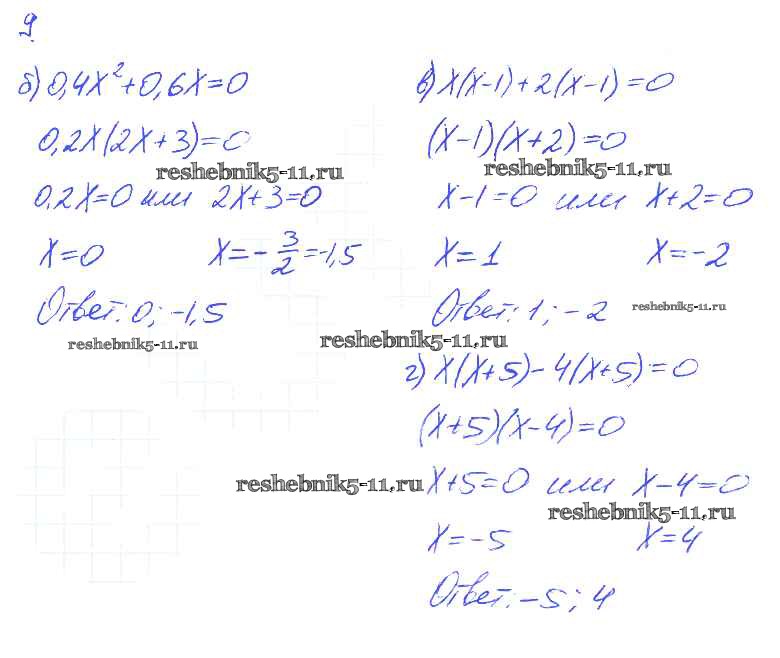 9.
б) 0,4x²+0,6x=0
0,2x(2x+3)=0
reshebnik5-11.ru
0,2x=0 или 2x+3=0
x=0 x=-3/2=-1,5
Ответ: 0; -1,5
reshebnik5-11.ru
в) x(x-1)+2(x-1)=0
(x-1)(x+2)=0
reshebnik5-11.ru
x-1=0 или x+2=0
x=1 x=-2
Ответ: 1; -2
reshebnik5-11.ru
reshebnik5-11.ru
г) x(x+5)-4(x+5)=0
(x+5)(x-4)=0
reshebnik5-11.ru
x+5=0 или x-4=0
reshebnik5-11.ru
x=-5 x=4
Ответ: -5; 4